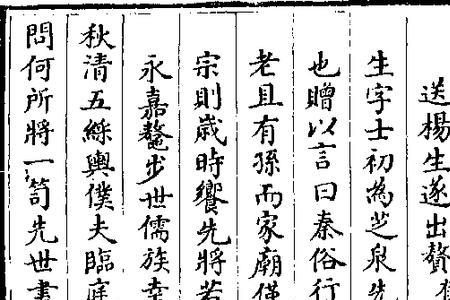 送楊生遂出贅
生字士初為芝泉先
也贈以言曰秦俗行
老且有孫而家廟僅
宗則歲時饗先將若
永嘉鼇步世儒族
秋清五綵輿僕夫臨庭
問何所將一笥先世書